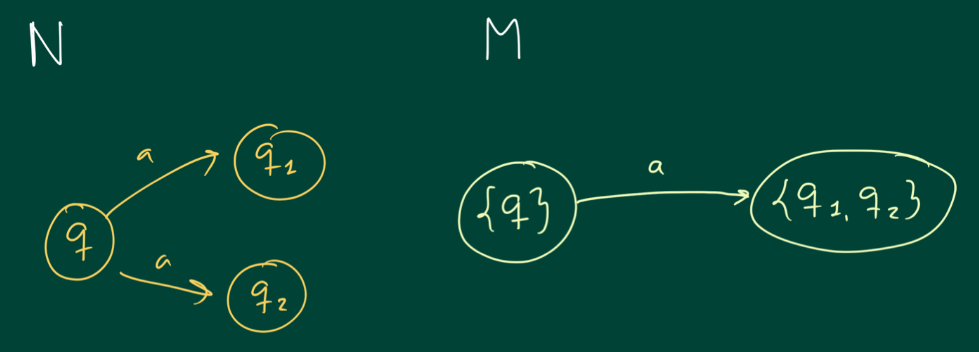 N
M
a
q₁
q
a
q₂
{q}
a
{q₁, q₂}